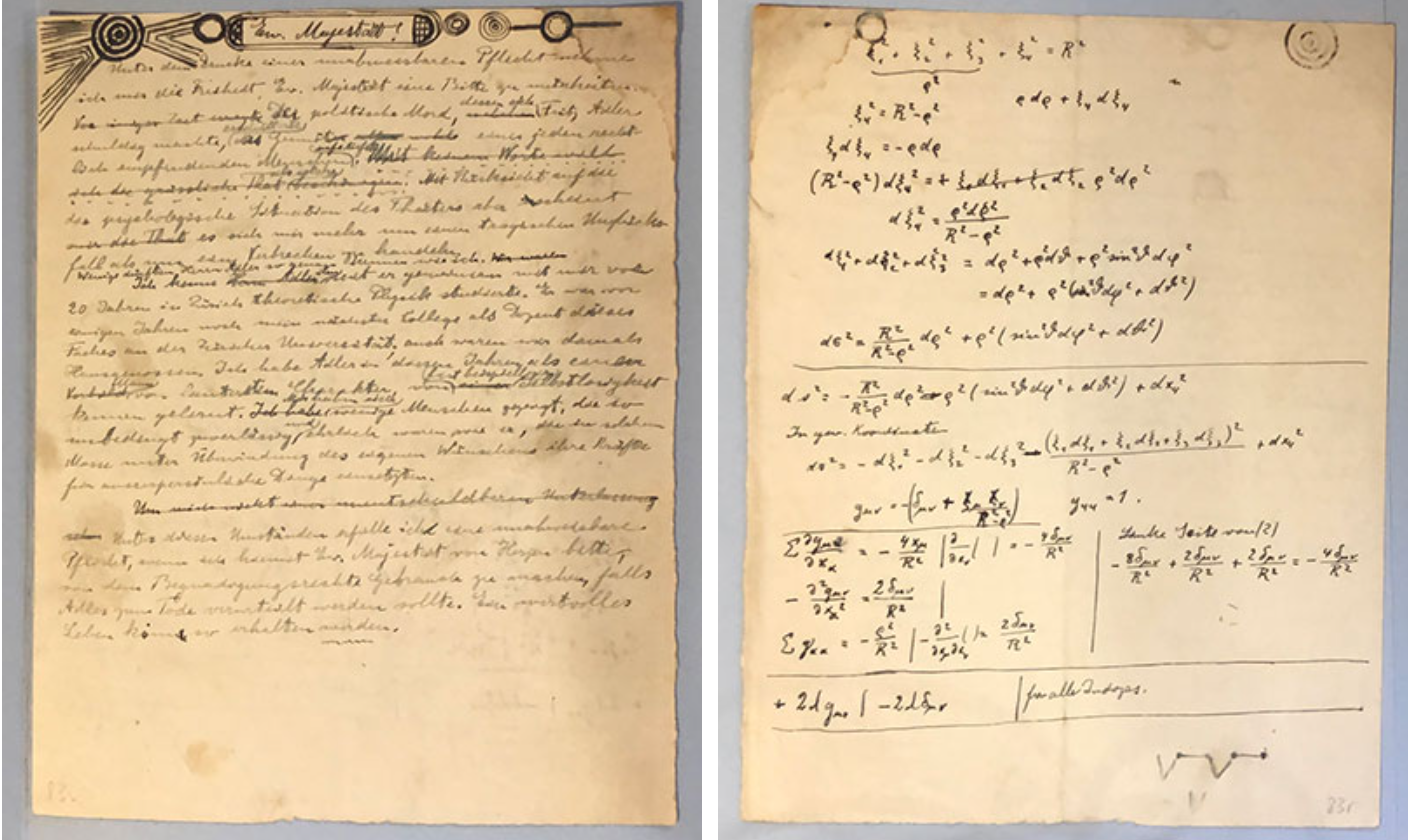 Ew. Majestät!
Unter dem Drucke einer unabweisbaren Pflicht nehme
ich mir die Freiheit, Ew. Majestät eine Bitte zu unterbreiten.
Der politische Mord, dessen sich Fritz Adler
schuldig machte, das eines jeden recht-
lich empfindenden Menschen. Mit keinem Worte
sich die grässliche That beschönigen. Mit Rücksicht auf die
die psychologische Situation des Thäters aber scheint
mir die That es sich mehr um einen tragischen Unglücks-
fall als um ein Verbrechen zu handeln.
Wenige dürften Adler so genau kennen wie ich.
Ich kenne Adler er gemeinsam mit mir vor
20 Jahren in Zürich theoretische Physik studierte. Er war vor
einigen Jahren noch mein nächster Collega als Dozent dieses
Faches an der Züricher Universität, auch waren wir damals
Hausgenossen. Ich habe Adler in diesen Jahren als einen
Charakter von Selbstlosigkeit
kennen gelernt. Ich habe wenige Menschen gezeigt, die so
unbedingt zuverlässig und ehrlich waren wie er, die in solchem
Masse unter Überwindung des eigenen Wünschens ihre Kräfte
für ausserpersönliche Dinge einsetzten.
Um mich nicht einer unentschuldbaren Unterlassung
Unter diesen Umständen erfülle ich eine unabweisbare
Pflicht, wenn ich hiermit Ew. Majestät von Herzen bitte,
von dem Begnadigungsrechte Gebrauch zu machen, falls
Adler zum Tode verurteilt werden sollte. Ein wertvolles
Leben könnte so erhalten werden.
83.
ξ₁² + ξ₂² + ξ₃² + ξ₄² = R²
ρ²
ρdρ + ξ₄dξ₄
ξ₄² = R² - ρ²
ξ₄dξ₄ = -ρdρ
(R²-ρ²)dξ₄² = + ξ₁dξ₁ + ξ₂dξ₂ ρ²dρ²
dξ₄² = ρ²dρ² / R²-ρ²
dξ₁² + dξ₂² + dξ₃² = dρ² + ρ²dϑ² + ρ²sin²ϑdφ²
= dρ² + ρ²(sin²ϑdφ² + dϑ²)
dσ² = R²/(R²-ρ²) dρ² + ρ²(sin²ϑdφ² + dϑ²)
ds² = - R²/(R²-ρ²) dρ² - ρ²(sin²ϑdφ² + dϑ²) + dx₄²
In gew. Koordinaten
ds² = -dξ₁² - dξ₂² - dξ₃² - (ξ₁dξ₁ + ξ₂dξ₂ + ξ₃dξ₃)² / (R²-ρ²) + dx₄²
gμν = -(δμν + xμxν / (R²-ρ²)) g₄₄ = 1.
Σ ∂gμα/∂xα = - 4xμ/R² | ∂/∂xν ( ) = - 4δμν/R²
- ∂²gμν/∂xα² = 2δμν/R²
Σ gαα = - ρ²/R² | - ∂²/∂xμ∂xν ( ) = 2δμν/R²
Linke Seite von (2)
- 8δμν/R² + 2δμν/R² + 2δμν/R² = - 4δμν/R²
+ 2λgμν | -2λδμν | für alle Indizes.
83r